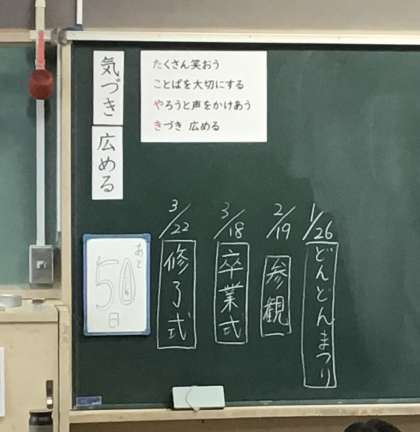 気づき
広める
たくさん笑おう
ことばを大切にする
やろうと声をかけあう
きづき 広める
1/26
どんどんまつり
2/19
参観
3/18
卒業式
3/22
修了式
あと
50
日